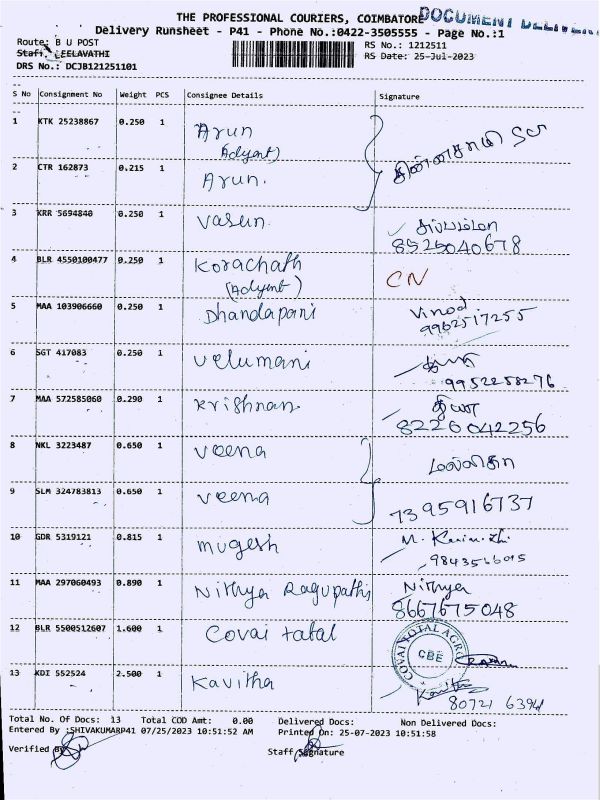 THE PROFESSIONAL COURIERS, COIMBATORE
DOCUMENT
Delivery Runsheet - P41 - Phone No.:0422-3505555 - Page No.:1
Route: B U POST
RS No.: 1212511
Staff: LEELAVATHI
RS Date: 25-Jul-2023
DRS No.: DCJB121251101
S No Consignment No Weight PCS Consignee Details Signature
1 KTK 25238867 0.250 1 Arun
(Adyent)
2 CTR 162873 0.215 1 Arun.
3 KRR 5694840 0.250 1 Vasun
8525040678
4 BLR 4550100477 0.250 1 Korachath CN
(Adyent)
5 MAA 103906660 0.250 1 Dhandapani Vinod
9962517255
6 SGT 417083 0.250 1 Velumani
9952258276
7 MAA 572585060 0.290 1 Krishnan
8226042256
8 NKL 3223487 0.650 1 Veena
9 SLM 324783813 0.650 1 Veena 7395916737
10 GDR 5319121 0.815 1 Mugesh
11 MAA 297060493 0.890 1 Nithya Ragupathi Nithya
8667675048
12 BLR 5500512607 1.600 1 Covai total
COVAI TOTAL AGRO
CBE
13 KDI 552524 2.500 1 Kavitha
80721 6394
Total No. Of Docs: 13 Total COD Amt: 0.00 Delivered Docs: Non Delivered Docs:
Entered By :SHIVAKUMARP41 07/25/2023 10:51:52 AM Printed On: 25-07-2023 10:51:58
Verified By Staff Signature